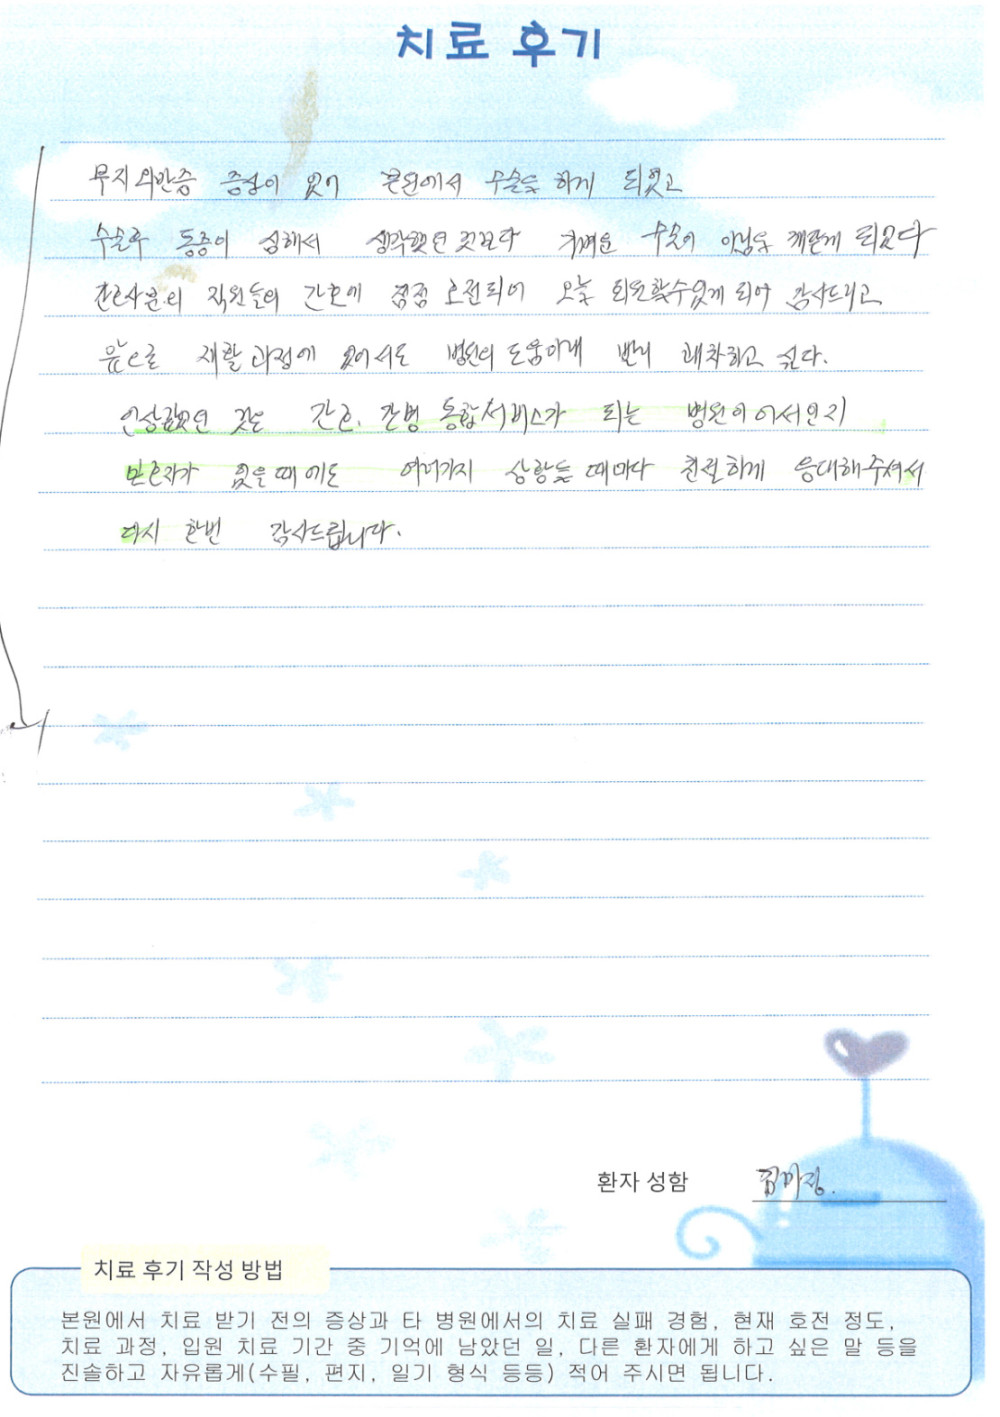 치료 후기
무지외반증 증상이 있어 본원에서 수술을 하게 되었고
수술후 통증이 심해서 생각했던 것보다 수술이 되었다
간호사분의 직원들의 간호에 점점 호전되어 오늘 퇴원할수있게 되어 감사드리고
앞으로 재활과정에 있어서도 병원의 도움아래 빨리 쾌차하고 싶다.
인상깊었던 것은 간호.간병 통합서비스가 되는 병원이어서인지
보호자가 없을때에도 여러가지 상황들 때마다 친절하게 응대해주셔서
다시 한번 감사드립니다.
환자 성함
치료 후기 작성 방법
본원에서 치료 받기 전의 증상과 타 병원에서의 치료 실패 경험, 현재 호전 정도,
치료 과정, 입원 치료 기간 중 기억에 남았던 일, 다른 환자에게 하고 싶은 말 등을
진솔하고 자유롭게(수필, 편지, 일기 형식 등등) 적어 주시면 됩니다.